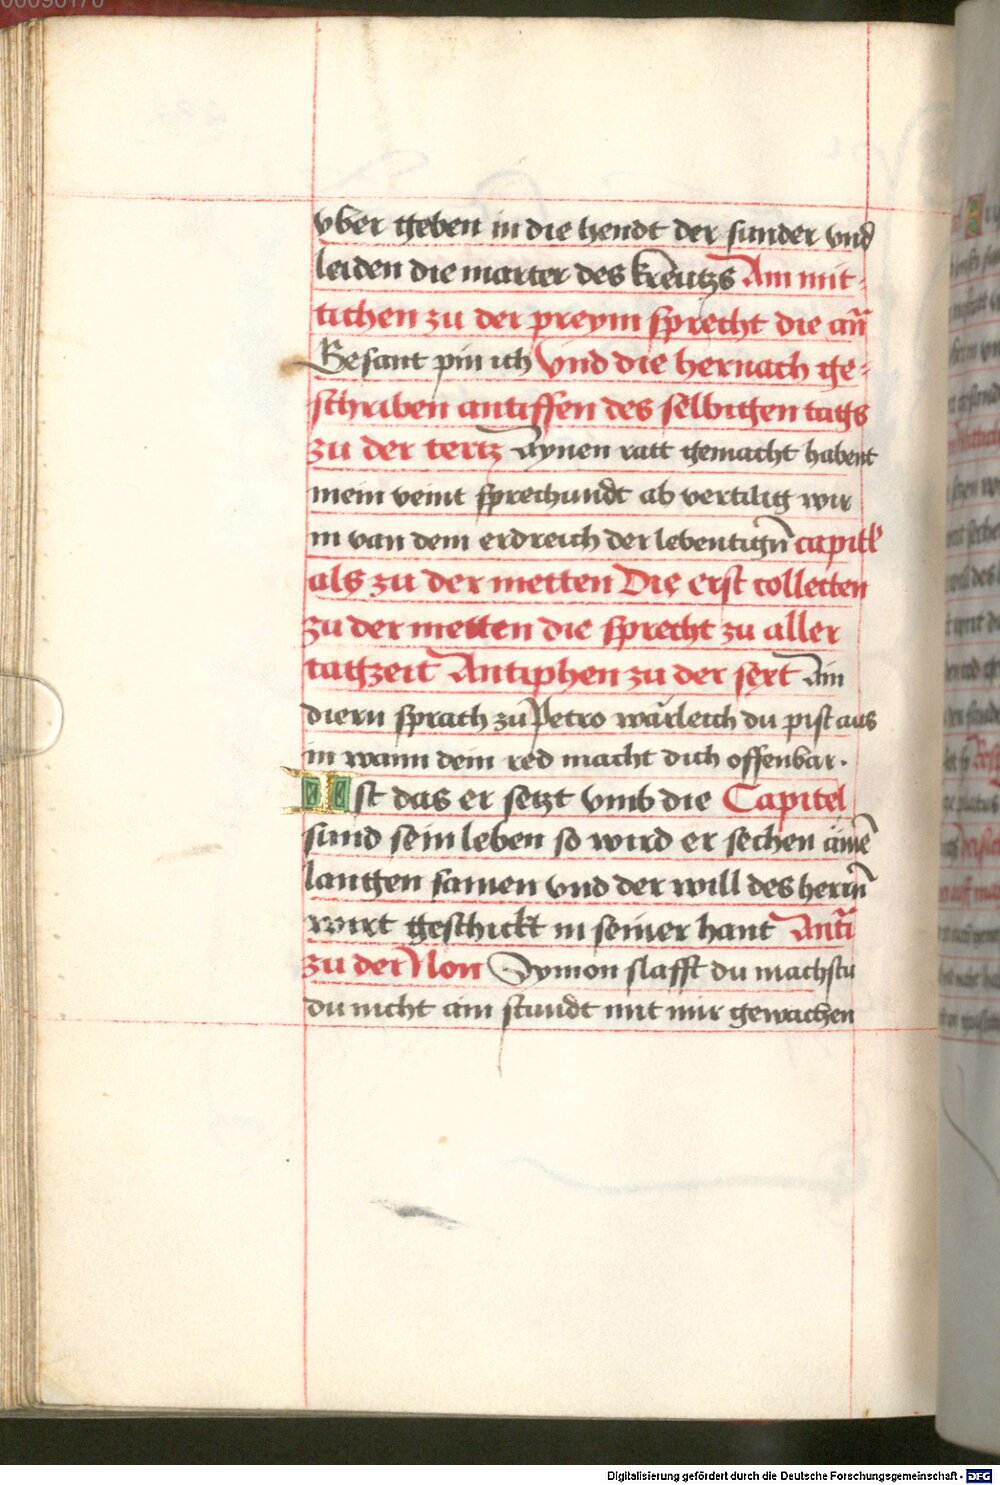 00090170
vber geben in die hendt der sunder vnd
leiden die marter des kreutzs Am mit-
tichen zu der preym sprecht die añ
Besant pin ich Vnd die hernach ge-
schriben antiffen des selbigen tags
zu der tertz Aynen ratt gemacht habent
mein veint sprechundt ab vertilig wir
in van dem erdreich der lebentign̄ capitl
als zu der metten Die erst collecten
zu der metten die sprecht zu aller
tagzeit Antiphen zu der sext Ain
diern sprach zu Petro wärleich du pist aus
in wann dein red macht dich offenbar.
Ist das er setzt vmb die Capitel
sund sein leben so wird er sechen ainē
langen samen vnd der will des herrn̄
wirt geschickt in seiner hant Anti
zu der Non Symon slafft du machstu
du nicht ain stundt mit mir gewachen
Digitalisierung gefördert durch die Deutsche Forschungsgemeinschaft - DFG